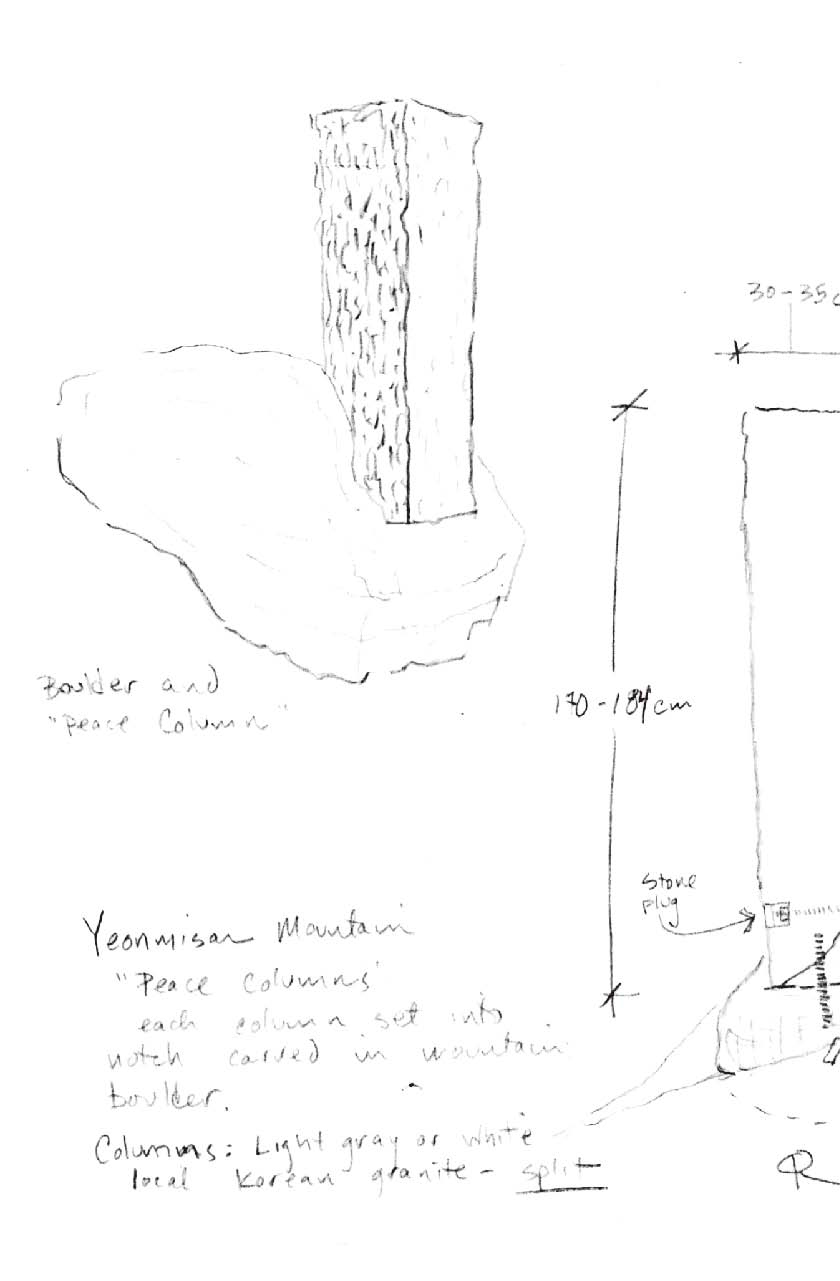 30-35c
170-184cm
Boulder and
"Peace Column"
Stone
plug
Yeonmisan Mountain
"Peace Columns"
each column set into
notch carved in mountain
boulder.
Columns: Light gray or white
local Korean granite - split
R